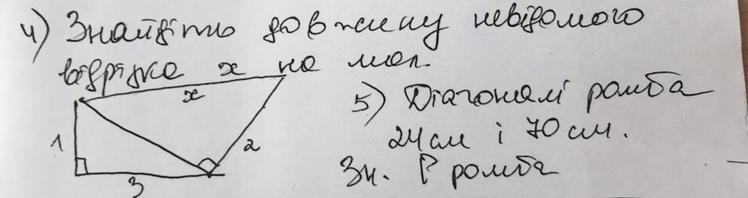 4) Знайдіть довжину невідомого
відрізка x на мал.
x
1
2
3
5) Діагоналі ромба
24 см і 70 см.
Зн. P ромба